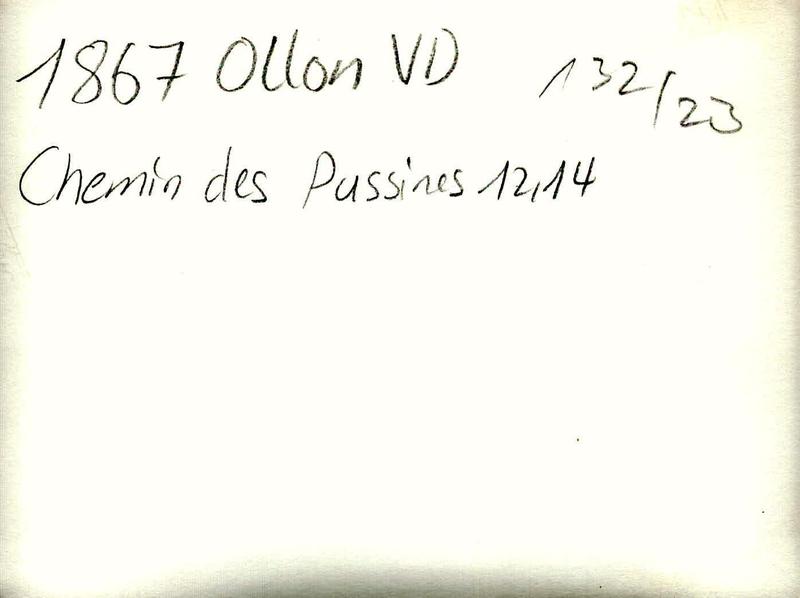 1867 Ollon VD 132/23
Chemin des Pussines 12,14